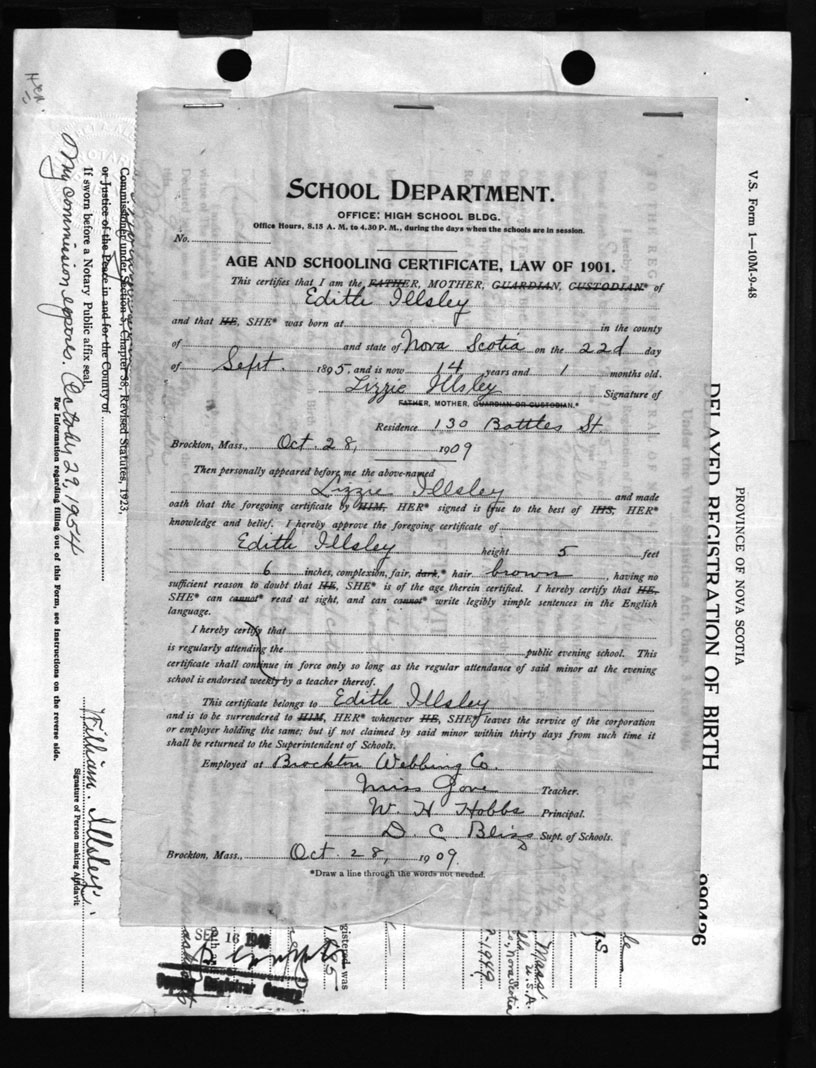 SCHOOL DEPARTMENT.
OFFICE: HIGH SCHOOL BLDG.
Office Hours, 8.15 A. M. to 4.30 P. M., during the days when the schools are in session.
No.
AGE AND SCHOOLING CERTIFICATE, LAW OF 1901.
This certifies that I am the FATHER, MOTHER, GUARDIAN, CUSTODIAN* of
Edith Illsley
and that HE, SHE* was born at in the county
of and state of Nova Scotia on the 22d day
of Sept. 1895 and is now 14 years and 1 months old.
Lizzie Illsley Signature of
FATHER, MOTHER, GUARDIAN OR CUSTODIAN.*
Residence 130 Battles St
Brockton, Mass., Oct. 28, 1909
Then personally appeared before me the above-named
Lizzie Illsley and made
oath that the foregoing certificate by HIM, HER* signed is true to the best of HIS, HER*
knowledge and belief. I hereby approve the foregoing certificate of
Edith Illsley height 5 feet
6 inches, complexion, fair, dark,* hair brown, having no
sufficient reason to doubt that HE, SHE* is of the age therein certified. I hereby certify that HE,
SHE* can cannot* read at sight, and can cannot* write legibly simple sentences in the English
language.
I hereby certify that
is regularly attending the public evening school. This
certificate shall continue in force only so long as the regular attendance of said minor at the evening
school is endorsed weekly by a teacher thereof.
This certificate belongs to Edith Illsley
and is to be surrendered to HIM, HER* whenever HE, SHE* leaves the service of the corporation
or employer holding the same; but if not claimed by said minor within thirty days from such time it
shall be returned to the Superintendent of Schools.
Employed at Brockton Webbing Co.
Miss Gove Teacher.
W. H. Hobbs Principal.
D. C. Bliss Supt. of Schools.
Brockton, Mass., Oct. 28, 1909.
*Draw a line through the words not needed.
V.S. Form 1—10M-9-48
PROVINCE OF NOVA SCOTIA
DELAYED REGISTRATION OF BIRTH
Commissioner under Section 3, Chapter 38, Revised Statutes, 1923,
or Justice of the Peace in and for the County of
If sworn before a Notary Public affix seal.
My Commission expires. October 29, 1954
For Information regarding filling out of this Form, see Instructions on the reverse side.
William Illsley
Signature of Person making Affidavit
Mass.
U.S.A.
Nova Scotia
1949
SEP 16 1949
Deputy Registrar General